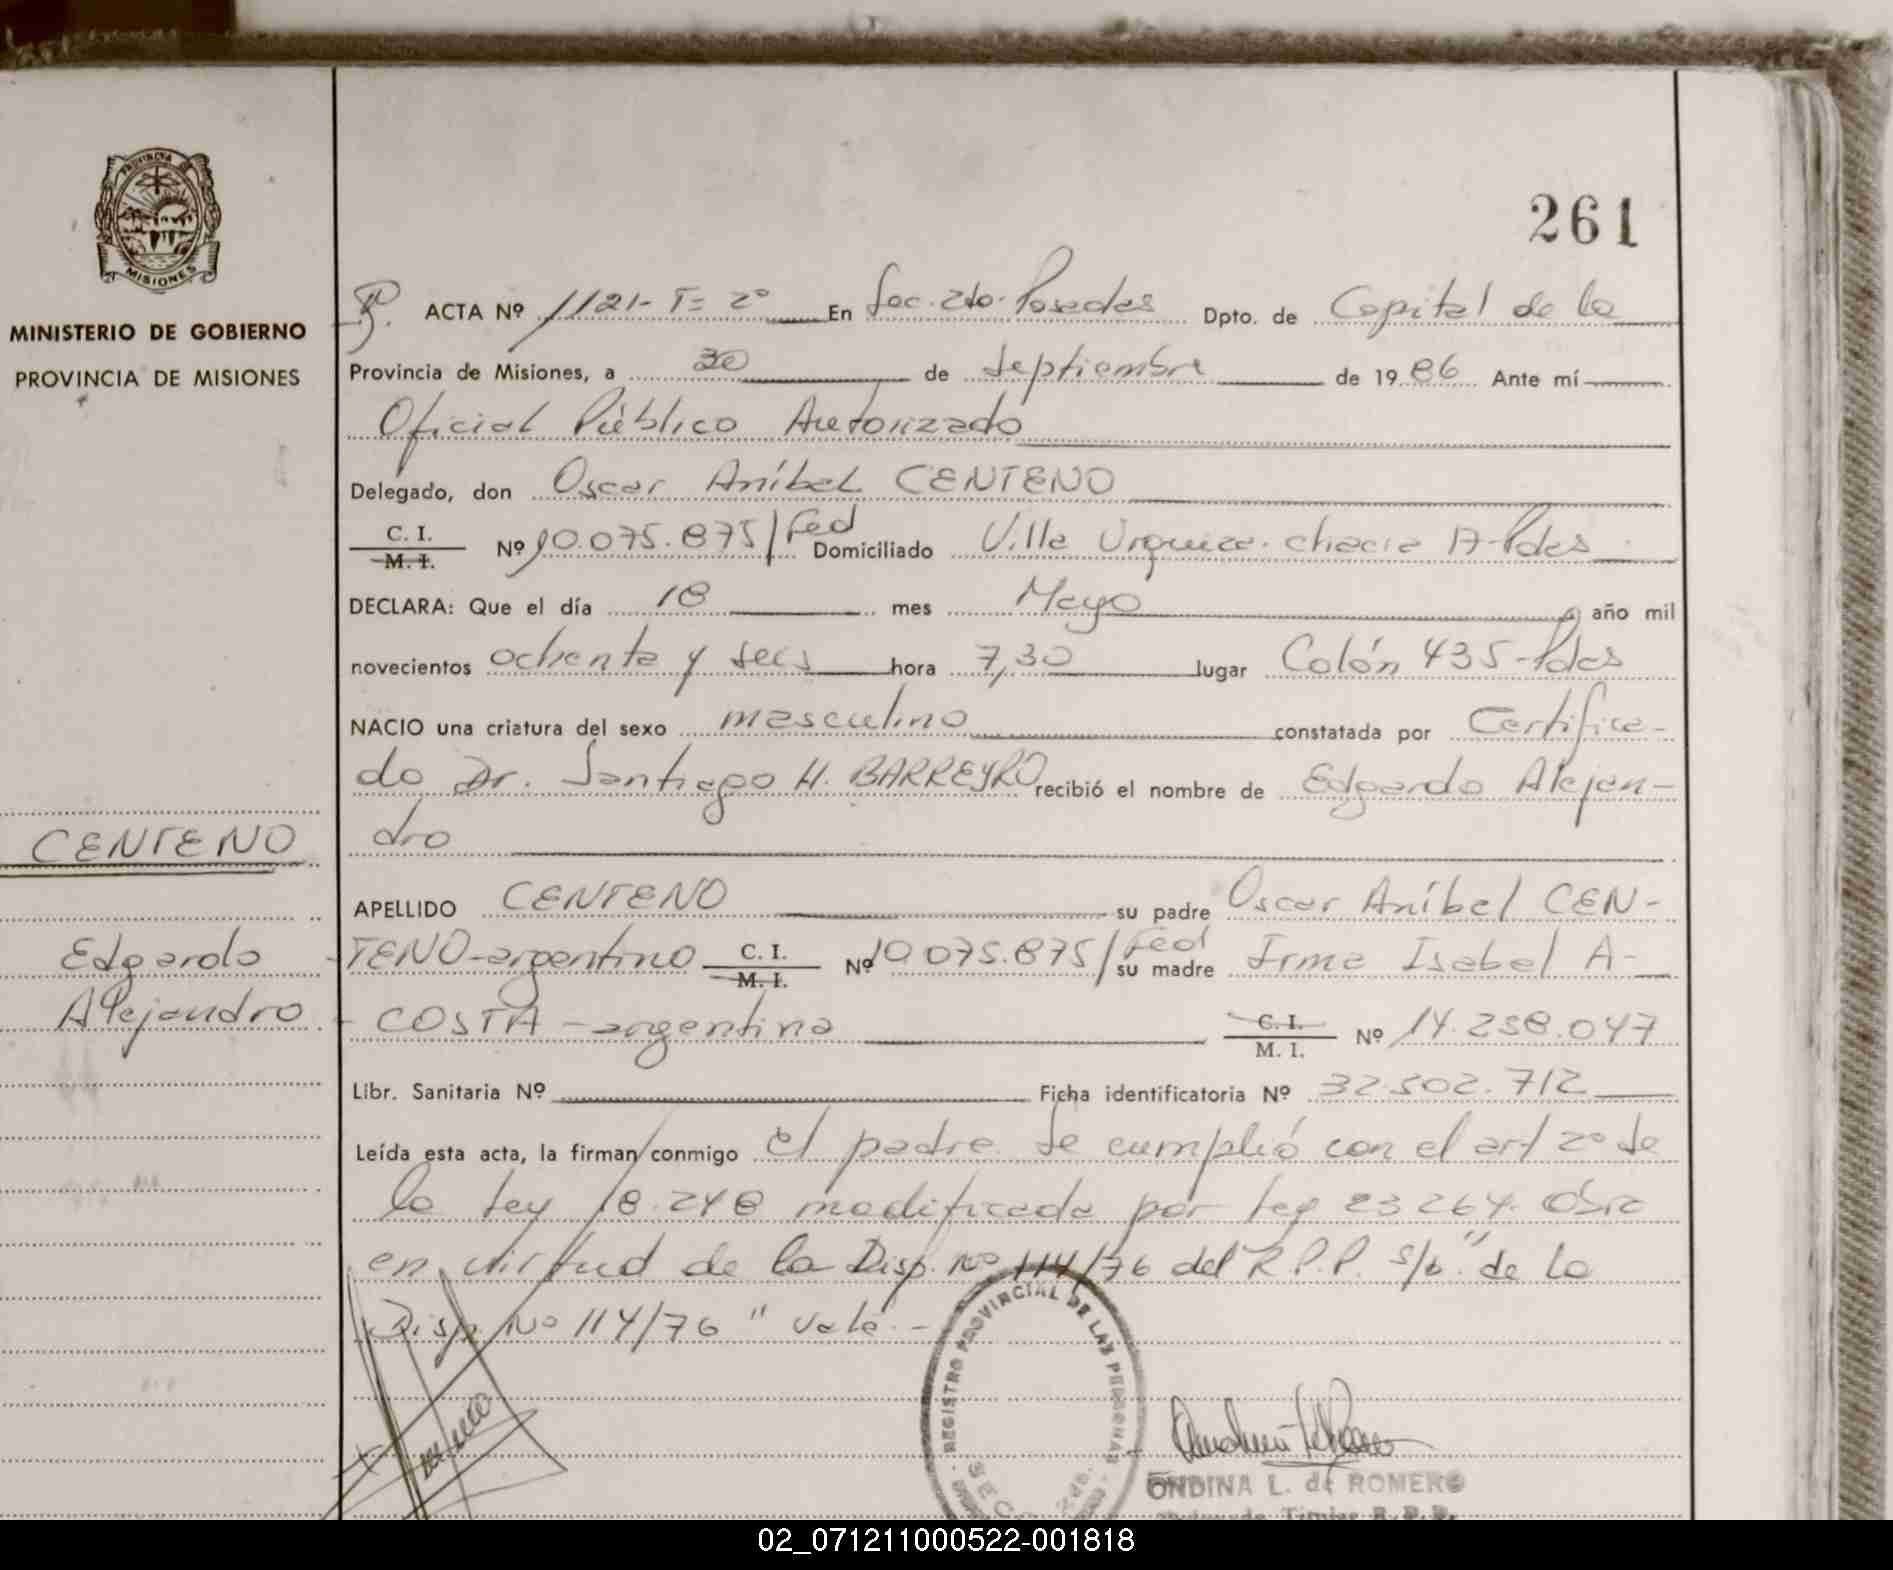 PROVINCIA DE
MISIONES
MINISTERIO DE GOBIERNO
PROVINCIA DE MISIONES
CENTENO
Edgardo
Alejandro
261
ACTA Nº 1121- T= 2º En Sec. 2da. Posadas Dpto. de Capital de la
Provincia de Misiones, a 30 de Septiembre de 1986 Ante mí
Oficial Público Autorizado
Delegado, don Oscar Aníbal CENTENO
C. I.
M. I. Nº 10.075.875/Fed Domiciliado Villa Urquiza. chacra 17-Pdas
DECLARA: Que el día 18 mes Mayo año mil
novecientos ochenta y seis hora 7,30 lugar Colón 435-Pdas
NACIO una criatura del sexo masculino constatada por Certifica-
do Dr. Santiago H. BARREYRO recibió el nombre de Edgardo Alejan-
dro
APELLIDO CENTENO su padre Oscar Aníbal CEN-
TENO-argentino C. I. M. I. Nº 10.075.875/Fed su madre Irma Isabel A-
COSTA - argentina C. I. M. I. Nº 14.258.047
Libr. Sanitaria Nº Ficha identificatoria Nº 32.502.712
Leída esta acta, la firman conmigo el padre. Se cumplió con el art 2º de
la Ley 18.248 modificada por Ley 23264.
en virtud de la Disp. Nº 114/76 del R.P.P. s/b." de la
Disp. Nº 114/76 " vale.-
REGISTRO PROVINCIAL DE LAS PERSONAS
ONDINA L. de ROMERO
02_071211000522-001818